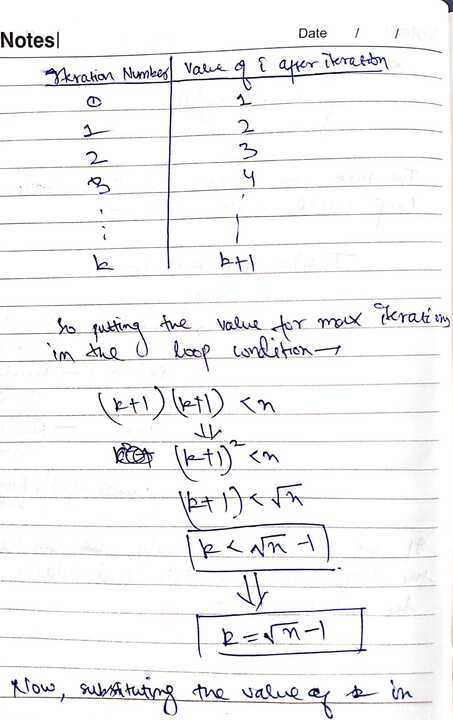 Notes|
Date / /
Iteration Number | Value of i after iteration
0 | 1
1 | 2
2 | 3
3 | 4
k | k+1
So putting the value for max iterations
in the loop condition →
(k+1)(k+1) < n
⇓
(k+1)² < n
(k+1) < √n
k < √n -1
⇓
k = √n -1
Now, substituting the value of k in